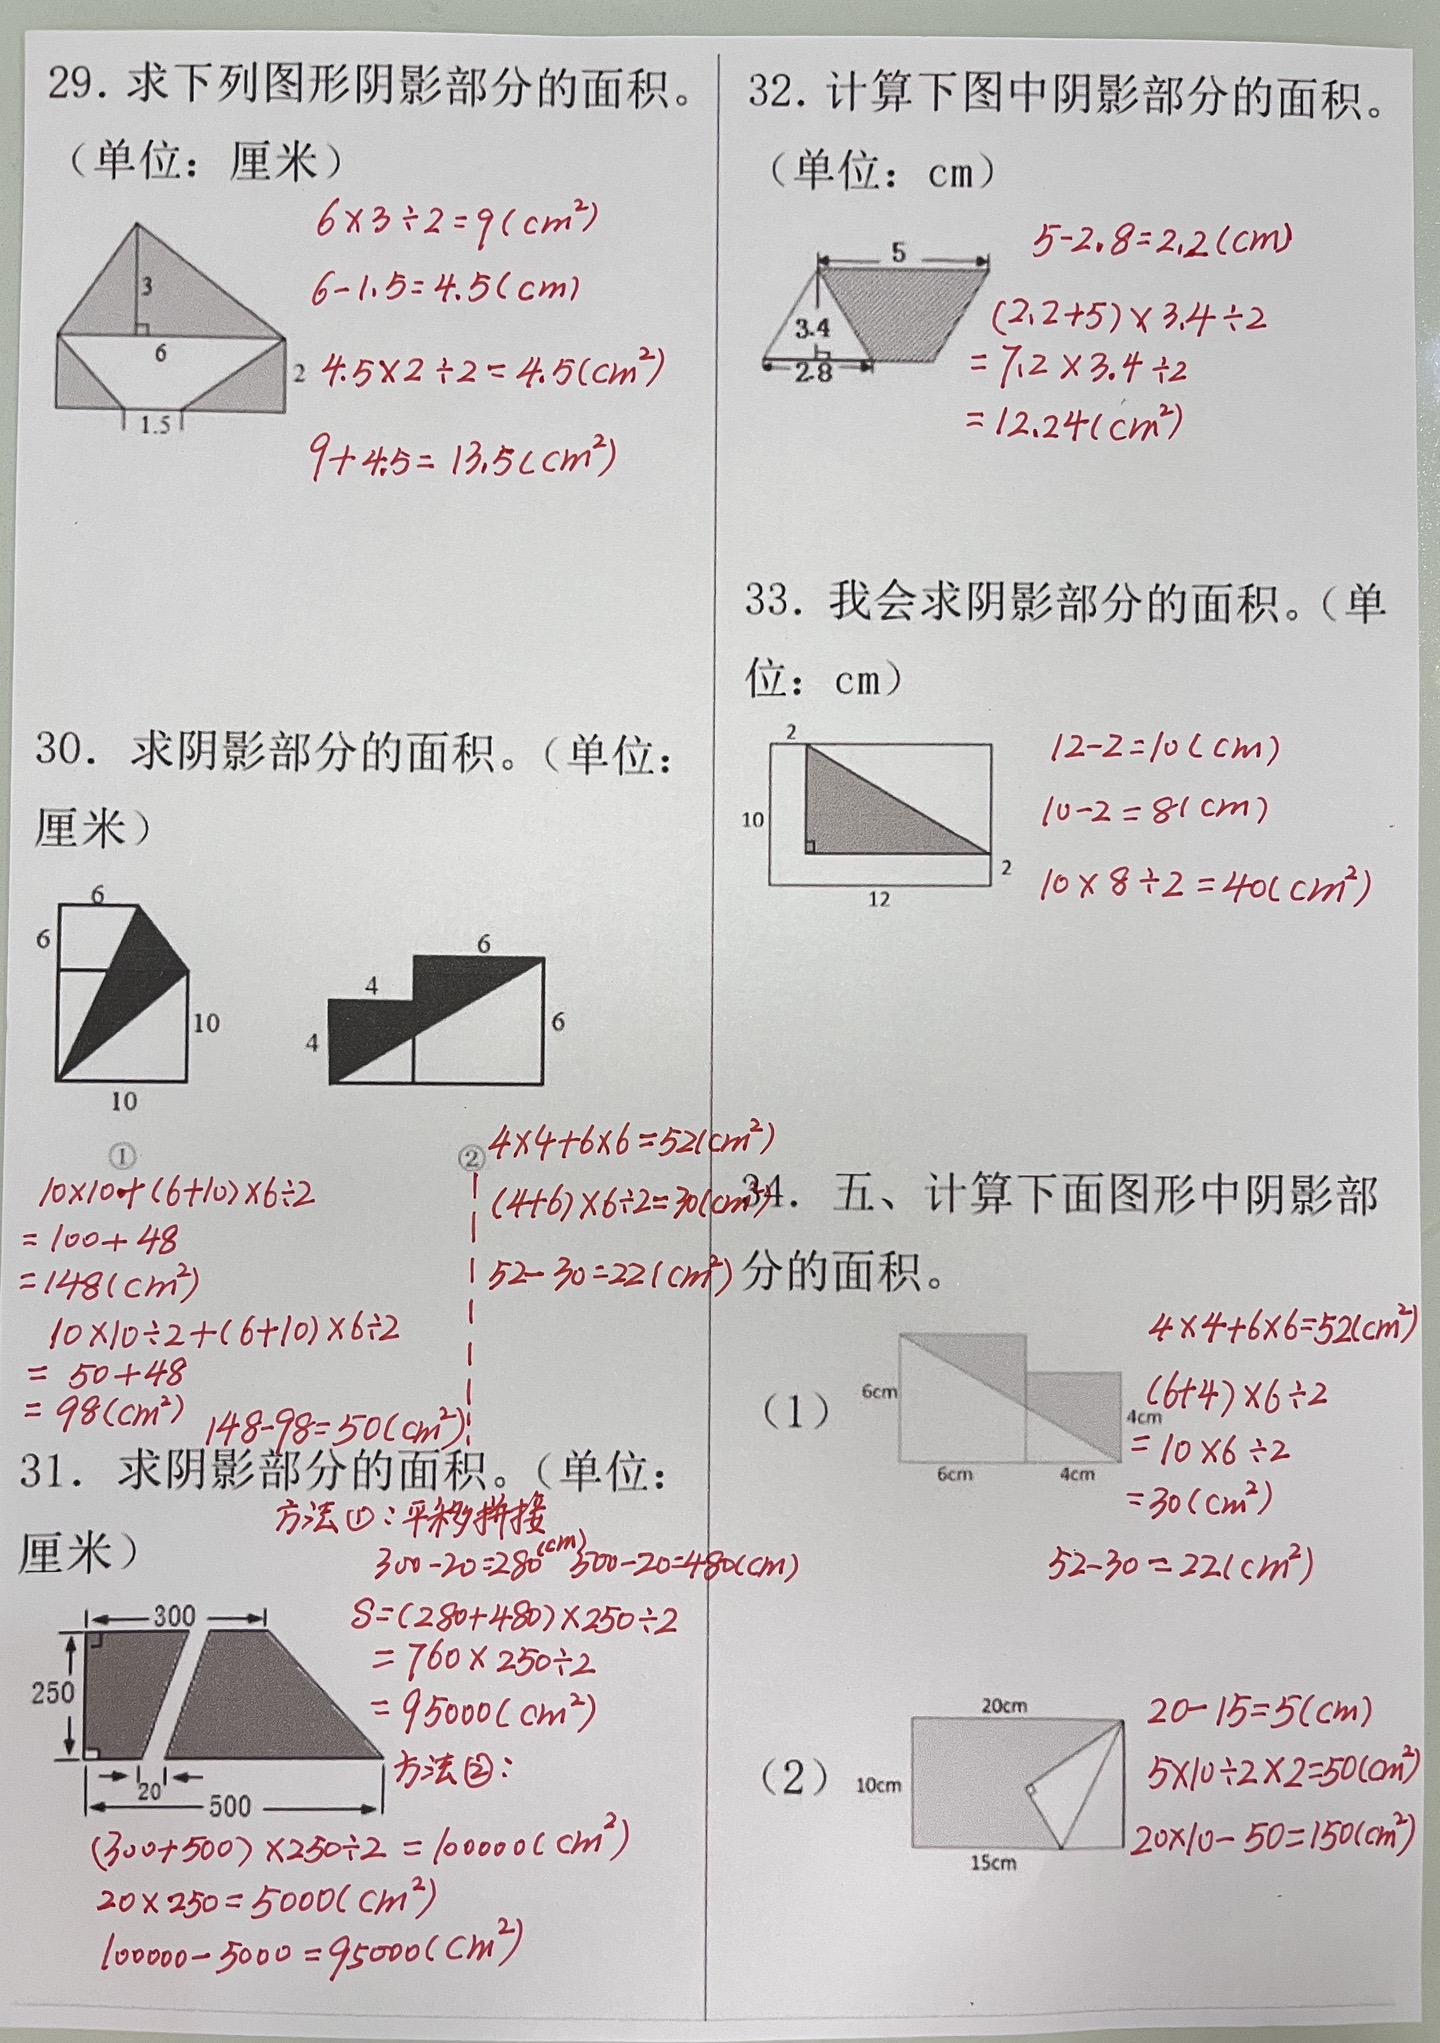 29. 求下列图形阴影部分的面积。
（单位：厘米）
6×3÷2=9(cm²)
6-1.5=4.5(cm)
4.5×2÷2=4.5(cm²)
9+4.5=13.5(cm²)
3
6
2
1.5
30. 求阴影部分的面积。（单位：
厘米）
6
6
10
10
①
4
4
6
6
②
10×10+(6+10)×6÷2
=100+48
=148(cm²)
10×10÷2+(6+10)×6÷2
=50+48
=98(cm²)
148-98=50(cm²)
4×4+6×6=52(cm²)
(4+6)×6÷2=30(cm²)
52-30=22(cm²)
31. 求阴影部分的面积。（单位：
厘米）
方法①：平移拼接
300-20=280(cm) 500-20=480(cm)
S=(280+480)×250÷2
=760×250÷2
=95000(cm²)
300
250
20
500
方法②：
(300+500)×250÷2=100000(cm²)
20×250=5000(cm²)
100000-5000=95000(cm²)
32. 计算下图中阴影部分的面积。
（单位：cm）
5
3.4
2.8
5-2.8=2.2(cm)
(2.2+5)×3.4÷2
=7.2×3.4÷2
=12.24(cm²)
33. 我会求阴影部分的面积。（单
位：cm）
2
10
2
12
12-2=10(cm)
10-2=8(cm)
10×8÷2=40(cm²)
34. 五、计算下面图形中阴影部
分的面积。
（1）
6cm
4cm
6cm
4cm
4×4+6×6=52(cm²)
(6+4)×6÷2
=10×6÷2
=30(cm²)
52-30=22(cm²)
（2）
20cm
10cm
15cm
20-15=5(cm)
5×10÷2×2=50(cm²)
20×10-50=150(cm²)